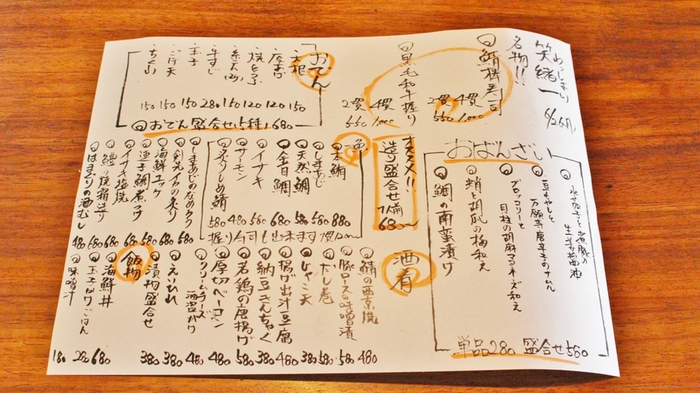 いらっしゃい
笑緒一
6/26(月)
名物!!
鯖棒寿司
2貫 4貫
550 1,000
黒毛和牛握り
2貫 4貫
550 1,000
おでん
大根 150
厚揚げ 120
焼とうふ 120
糸こん 150
牛すじ 280
玉子 150
ごぼ天 150
ちくわ 150
おでん盛合せ5種 680
おばんざい
水茄子と煮豚の生姜醤油
豆もやしと万願寺唐辛子のナムル
ブロッコリーと貝柱の胡麻マヨネーズ和え
蛸と胡瓜の梅和え
鯛の南蛮漬け
単品280 盛合せ580
オススメ!!
造り盛合せ
1人前
680〜
本鮪 880
しまあじ 580
天然鯛 580
金目鯛 580
イサキ 480
サーモン 480
炙りしめ鯖 580
握り寿司も出来ます
しまあじのなめろう 580
剣先イカの炙り 580
海鮮ユッケ 580
イサキ塩焼 680
はまぐりの酒むし 480
酒肴
鯖の西京焼 480
豚ロースの味噌漬 580
だし巻 580
じゃこ天 380
揚げ出汁豆腐 480
納豆きんちゃく 380
若鶏の唐揚げ 580
厚切ベーコン 480
クリームチーズ酒盗がけ 480
えいひれ 380
漬物盛合せ 380
飯物
海鮮丼 680
玉子かけごはん 280
味噌汁 180